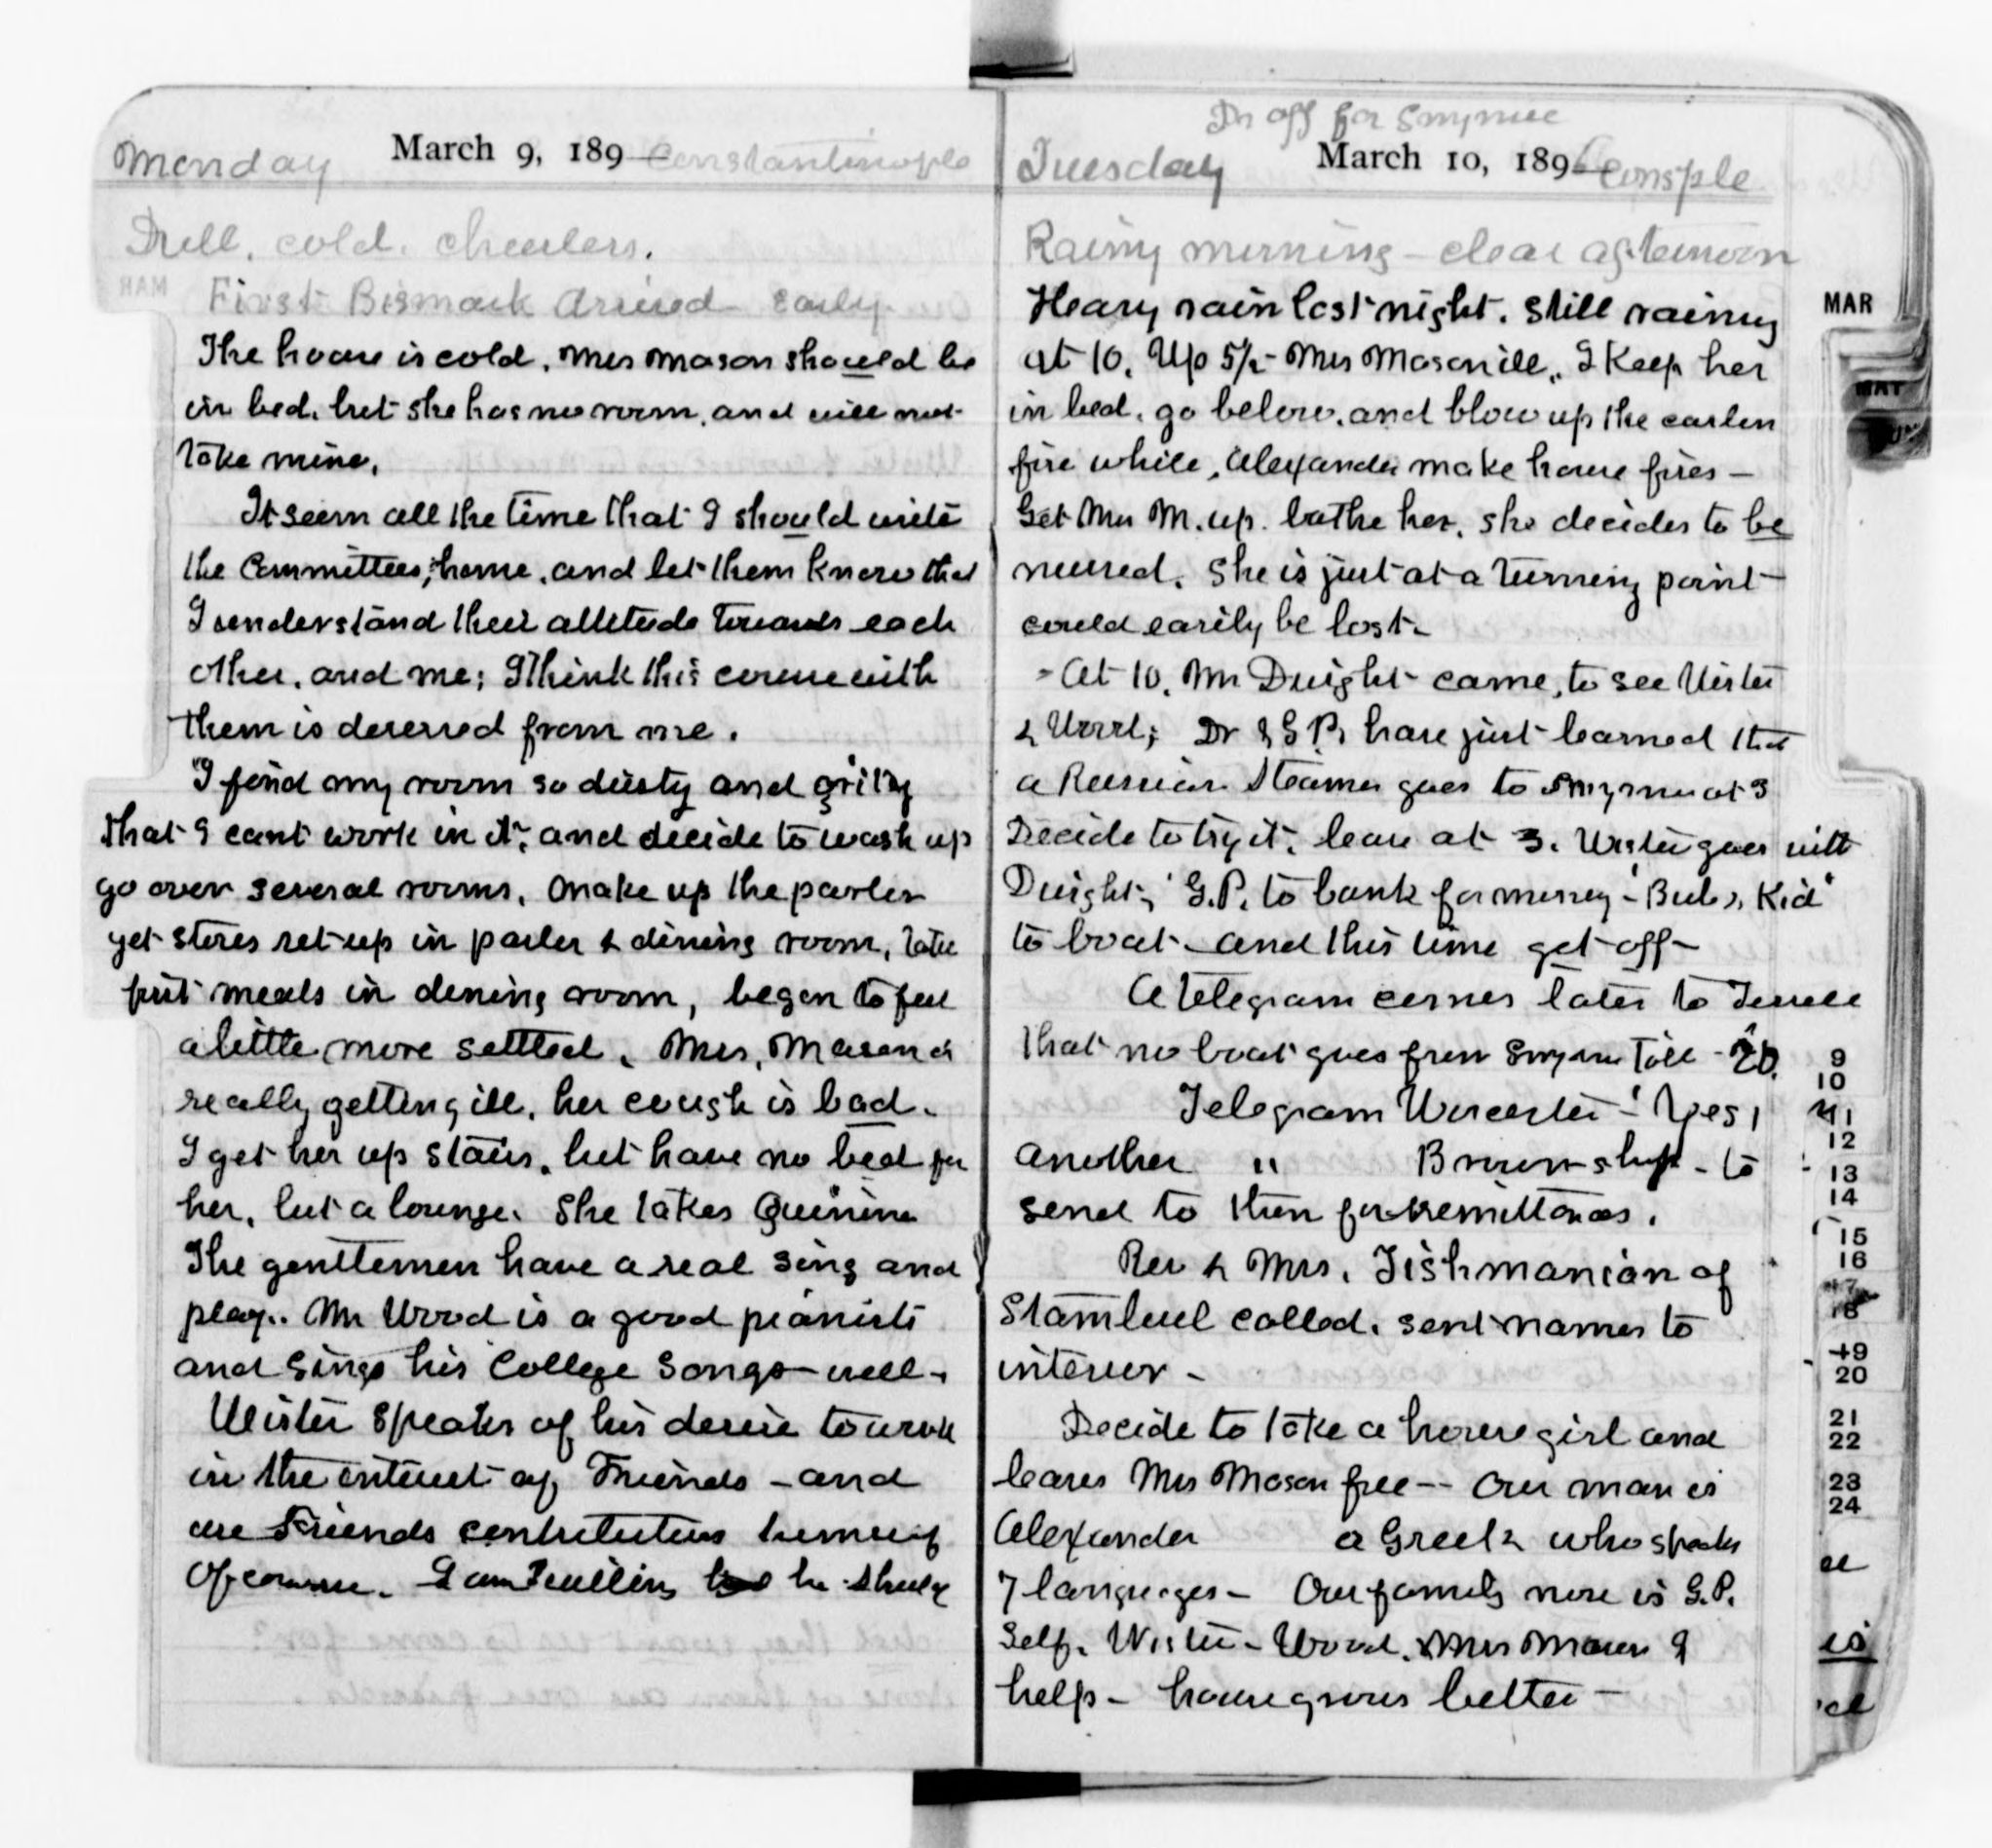 Monday March 9, 189 Constantinople
Dull, cold, cheerless.
First Bismark arrived early.
The house is cold, Mrs Mason should be
in bed, but she has no room, and will not
take mine.
It seem all the time that I should write
the Committees, home, and let them know that
I understand their attitude towards each
other, and me; I think this course with
them is deserved from me.
I find my room so dusty and grity
that I cant work in it, and decide to wash up
go over several rooms, make up the parlor
get stoves set up in parlor & dining room, take
first meals in dining room, began to feel
a little more settled, Mrs. Mason is
really getting ill, her cough is bad.
I get her up stairs, but have no bed for
her, but a lounge. She takes Quinine
The gentlemen have a real sing and
play.. Mr Wood is a good pianist
and sings his College songs well.
Wister speaks of his desire to work
in the interest of Friends - and
are Friends contributions
Of course. I am willing he should
Dr off for Smyrna
Tuesday March 10, 1896 Consple
Rainy morning - clear afternoon
Heavy rain last night. still rainy
at 10. Up 5½ - Mrs Mason ill, I keep her
in bed, go below, and blow up the
fire while, Alexander make house fires -
Get Mrs M. up. bathe her, she decides to be
nursed. She is just at a turning point
could easily be lost.
- At 10, Mr Dwight came, to see Wister
& Wood; Dr & G.P. have just learned that
a Russian Steamer goes to Smyrna at 3
Decide to try it, leave at 3. Wister goes with
Dwight, G.P. to bank for money - "Bub & Kid"
to boat - and this time get off -
A telegram comes later to
that no boat goes from Smyrna till - 20.
Telegram Worcester - "Yes,
another " Brown ship - to
send to them for remittances.
Rev & Mrs. Tishmanian of
Stamboul called. sent names to
interior -
Decide to take a house girl and
leaves Mrs Mason free -- Our man is
Alexander a Greek who speaks
7 languages - Our family now is G.P.
Self. Wister - Wood. & Mrs Mason &
help - house grows better -
MAR
MAY
9
10
11
12
13
14
15
16
17
18
19
20
21
22
23
24